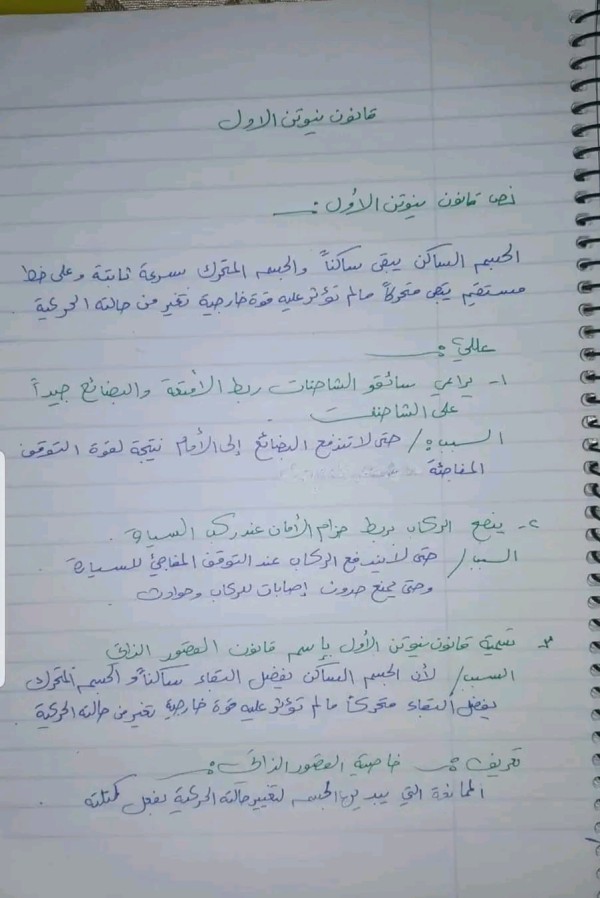 قانون نيوتن الاول
نص قانون نيوتن الأول :
الجسم الساكن يبقى ساكناً والجسم المتحرك بسرعة ثابتة وعلى خط
مستقيم يبقى متحركاً مالم تؤثر عليه قوة خارجية تغير من حالته الحركية
عللي :
١- يراعي سائقو الشاحنات ربط الأمتعة والبضائع جيداً
على الشاحنات
السبب / حتى لا تندفع البضائع إلى الأمام نتيجة لقوة التوقف
المفاجئة
٢- ينصح الركاب بربط حزام الأمان عند ركب السيارة
السبب / حتى لا يندفع الركاب عند التوقف المفاجئ للسيارة
وحتى يمنع حدوث إصابات للركاب وحوادث
٣- تسمية قانون نيوتن الأول بإسم قانون القصور الذاتي
السبب / لأن الجسم الساكن يفضل البقاء ساكناً والجسم المتحرك
يفضل البقاء متحركاً مالم تؤثر عليه قوة خارجية تغير من حالته الحركية
تعريف : خاصية القصور الذاتي :
الممانعة التي يبديها الجسم لتغيير حالته الحركية بفعل كتلته